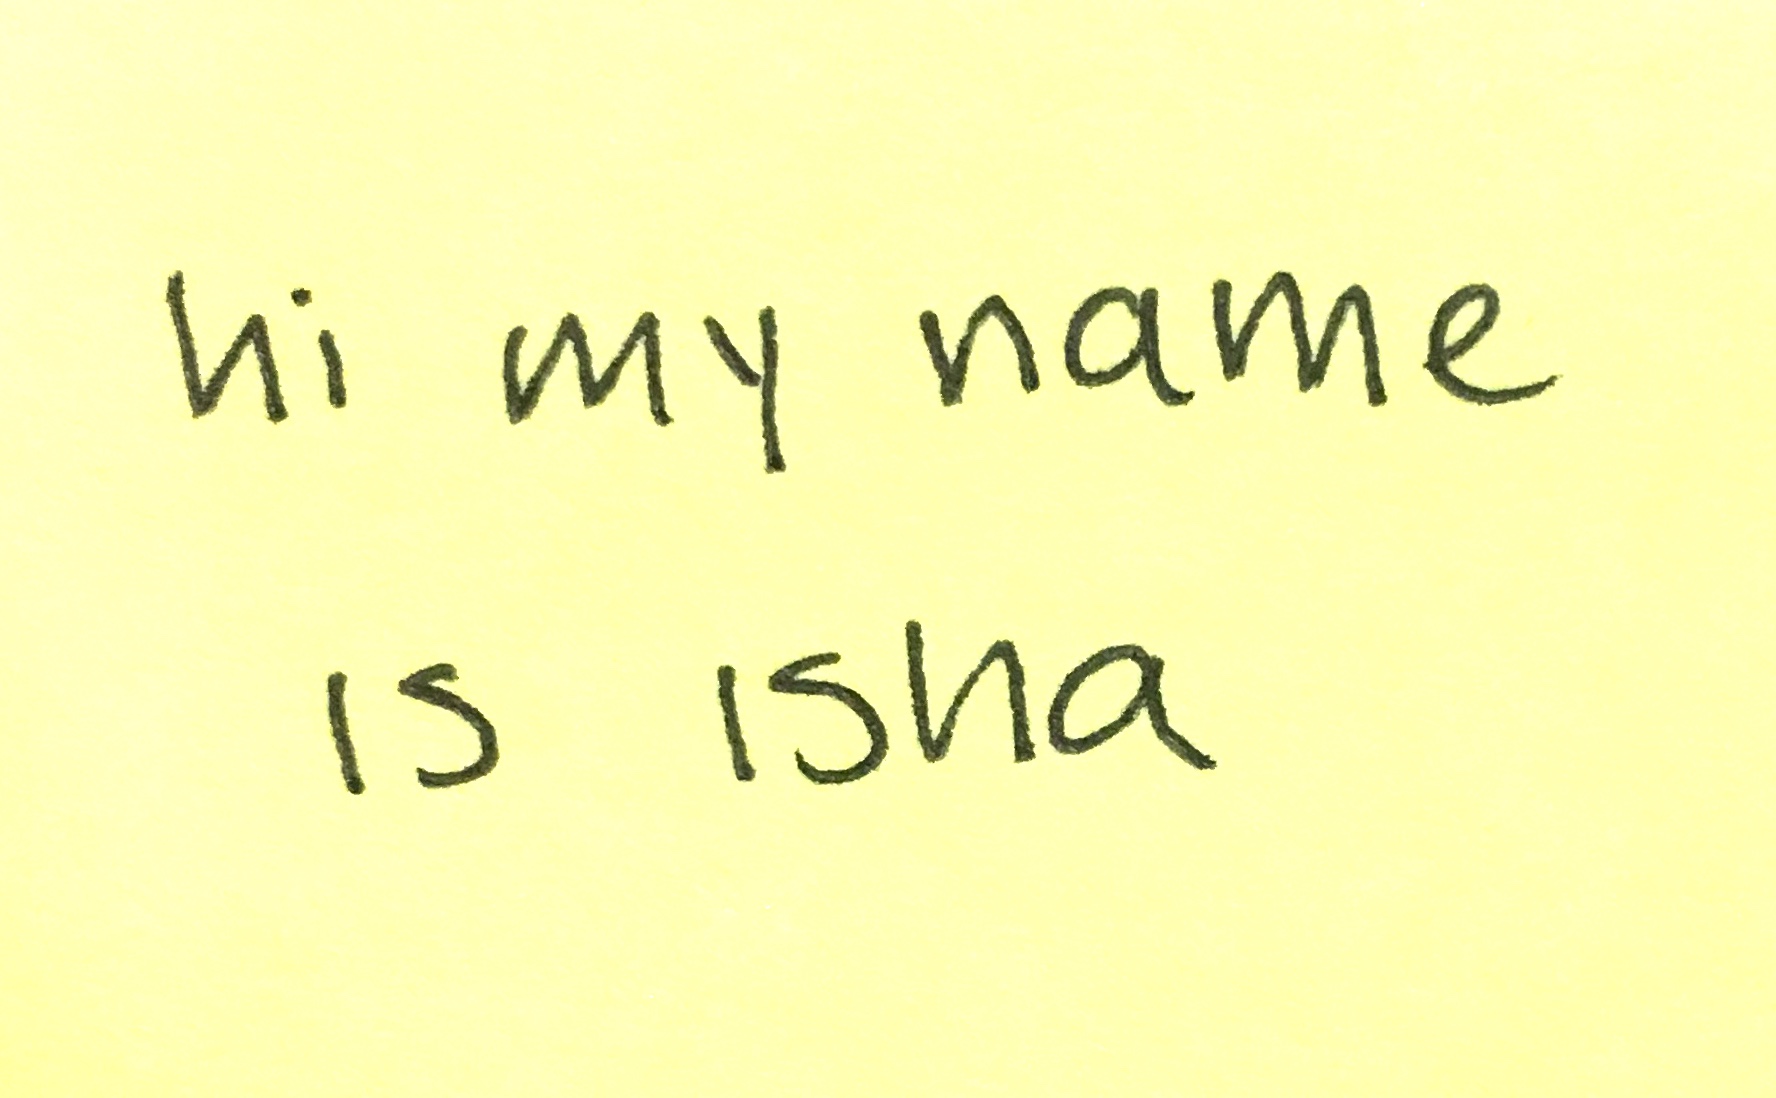 hi my name
is isha